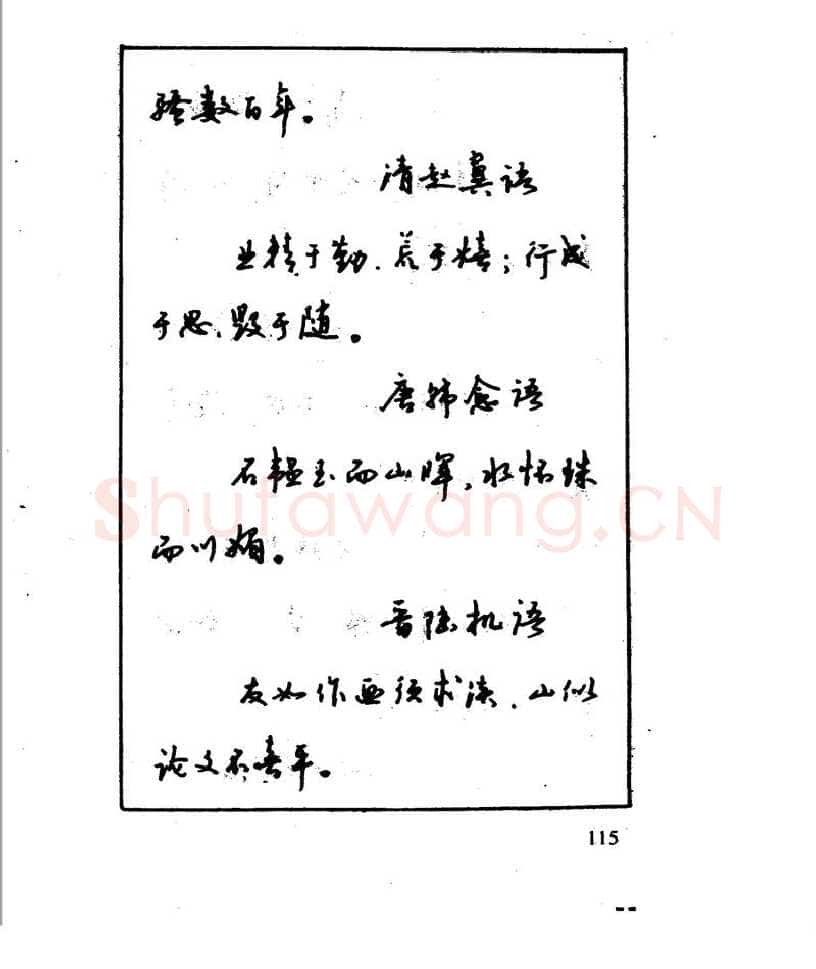 骚数百年。
清赵翼语
业精于勤、荒于嬉；行成
于思、毁于随。
唐韩愈语
石韫玉而山晖，水怀珠
而川媚。
Shufawang.CN
晋陆机语
友如作画须求淡、山似
论文不喜平。
115